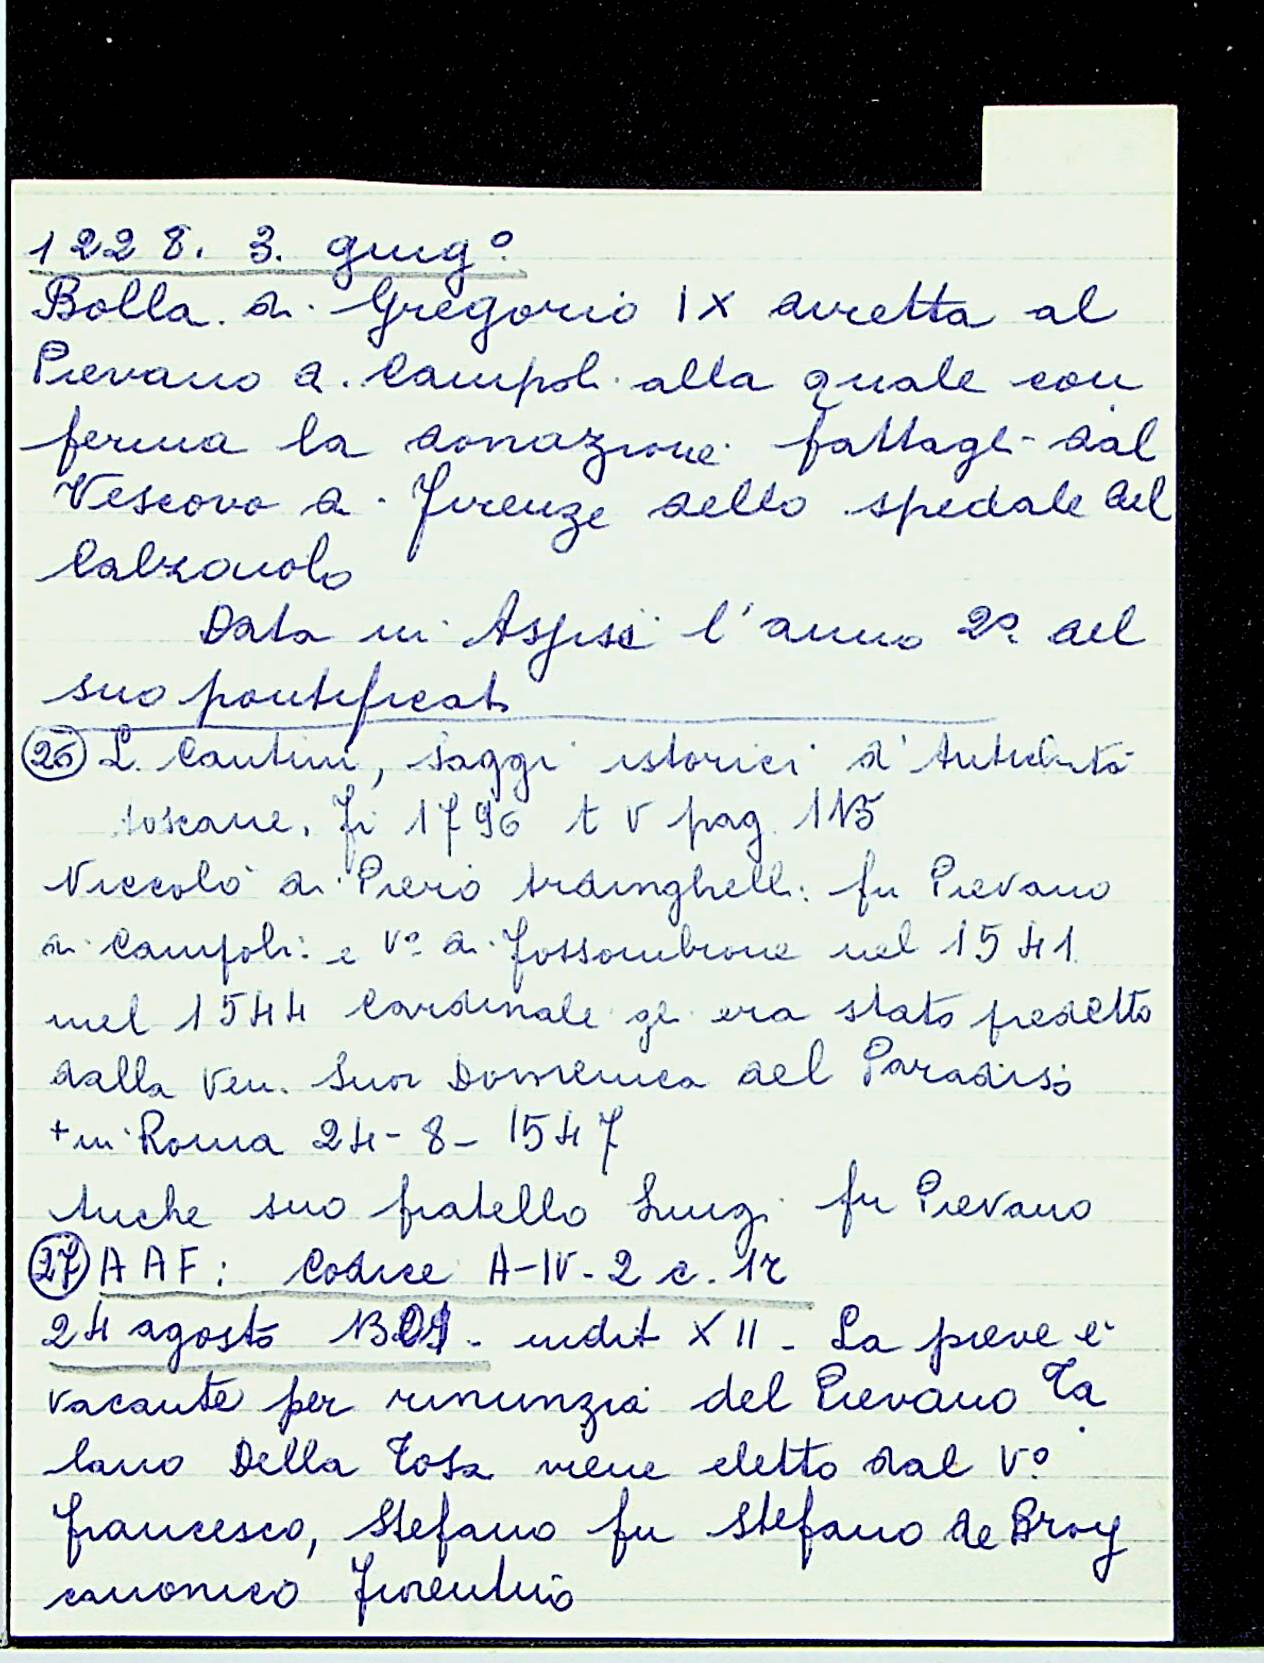 1228. 3. giug°
Bolla di Gregorio IX diretta al
Pievano di Campoli alla quale con
ferma la donazione fattagli dal
Vescovo di Firenze dello spedale del
Calzaiolo
Data in Assisi l'anno 2° del
suo pontificato
26 L. Cantini, Saggi istorici d'Antichità
toscane. Fi 1796 t V pag. 113
Niccolò di Piero Ardinghelli: fu Pievano
di Campoli: e V° di Fossombrone nel 1541
nel 1544 Cardinale gli era stato predetto
dalla Ven. Suor Domenica del Paradiso
+ in Roma 24-8-1547
Anche suo fratello Luigi fu Pievano
27 AAF: Codice A-IV-2 c. 1r
24 agosto - indit XII - La pieve è
vacante per rinunzia del Pievano Ta
lano Della Tosa viene eletto dal V°
Francesco, Stefano fu Stefano de Broy
canonico Fiorentino